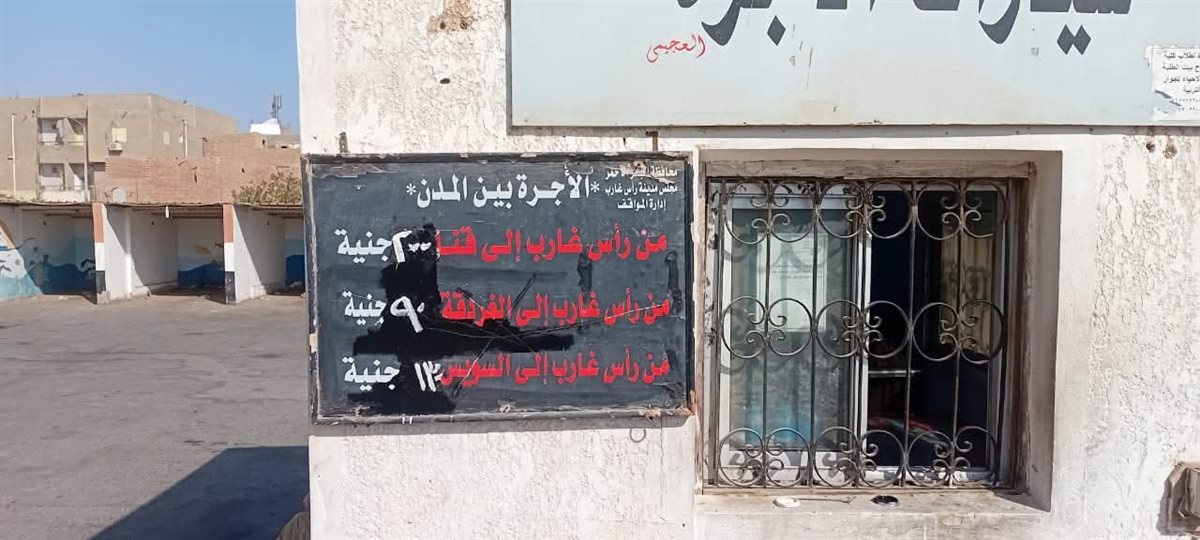 سيارات الأجرة
العجيمى
لطلاب كلية
محافظة البحر الأحمر
مجلس مدينة رأس غارب
إدارة المواقف
*الأجرة بين المدن*
من رأس غارب إلى قنا ٢٠٠ جنية
من رأس غارب إلى الغردقة ٩٠ جنية
من رأس غارب إلى السويس ١٣٠ جنية